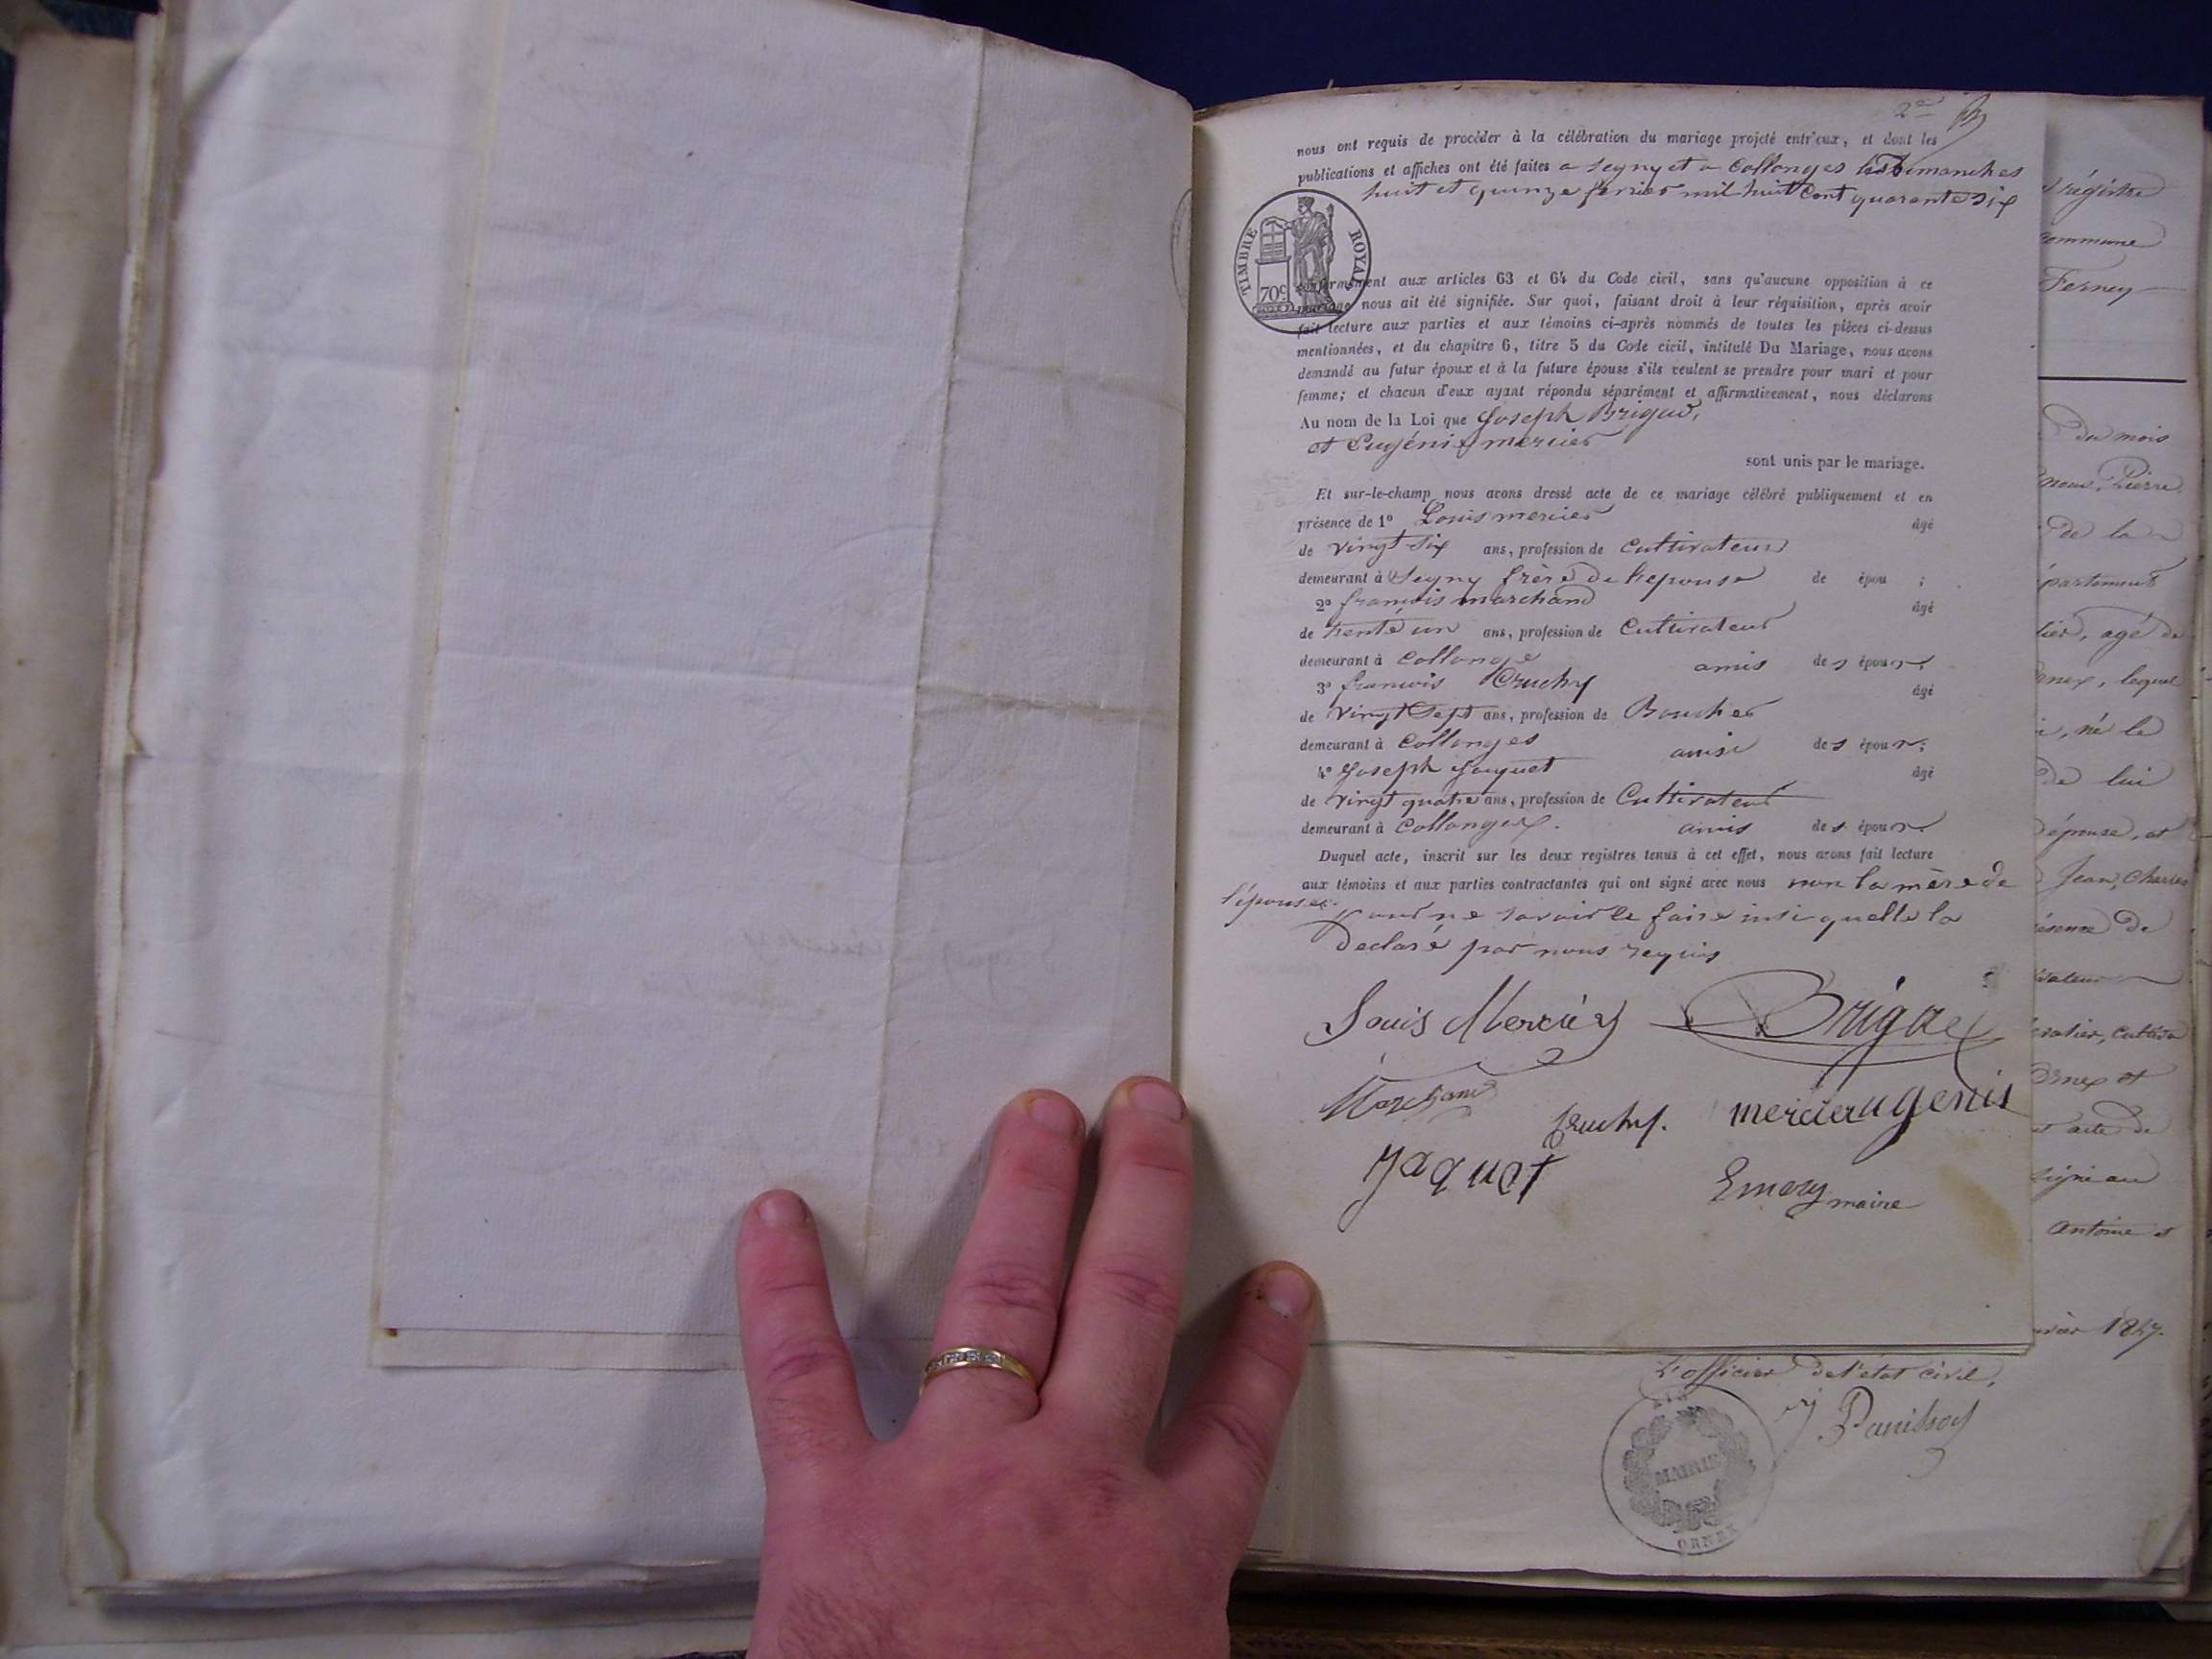 2e
nous ont requis de procéder à la célébration du mariage projeté entr'eux, et dont les
publications et affiches ont été faites a Segny et a Collonges les Dimanches
huit et quinze fevrier mil huit Cent quarante six
TIMBRE ROYAL
70c
conformément aux articles 63 et 64 du Code civil, sans qu'aucune opposition à ce
mariage nous ait été signifiée. Sur quoi, faisant droit à leur réquisition, après avoir
fait lecture aux parties et aux témoins ci-après nommés de toutes les pièces ci-dessus
mentionnées, et du chapitre 6, titre 5 du Code civil, intitulé Du Mariage, nous avons
demandé au futur époux et à la future épouse s'ils veulent se prendre pour mari et pour
femme; et chacun d'eux ayant répondu séparément et affirmativement, nous déclarons
Au nom de la Loi que Joseph Brigad,
et Eugénie mercier
sont unis par le mariage.
Et sur-le-champ nous avons dressé acte de ce mariage célébré publiquement et en
présence de 1º Louis mercier âgé
de vingt six ans, profession de Cultivateur
demeurant à Segny frère de l'epouse de épou ;
2º francois marchand âgé
de trente un ans, profession de Cultivateur
demeurant à Collonge amis des époux;
3º francois Cruchy âgé
de vingt Sept ans, profession de Boucher
demeurant à Collonges amis des époux;
4º Joseph Jaquet âgé
de vingt quatre ans, profession de Cultivateur
demeurant à Collonges. amis des époux.
Duquel acte, inscrit sur les deux registres tenus à cet effet, nous avons fait lecture
aux témoins et aux parties contractantes qui ont signé avec nous non la mère de
l'épouse pour ne savoir le faire insi quelle la
Declaré par nous requis
Louis Mercier
Marchand
Cruchy.
mercier ugenis
Jaquet
Emery maire
registre
commune
Ferney
du mois
Pierre
de la
lequel
né le
de lui
épouse, et
Jean, Charles
de
et
acte de
Antoine et
1847.
L'officier de l'état civil,
MAIRIE
ORNEX